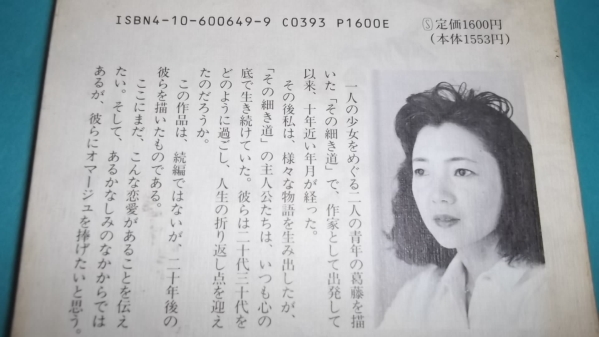 ISBN4-10-600649-9 C0393 P1600E
Ⓢ定価1600円
(本体1553円)
一人の少女をめぐる二人の青年の葛藤を描
いた「その細き道」で、作家として出発して
以来、十年近い年月が経った。
その後私は、様々な物語を生み出したが、
「その細き道」の主人公たちは、いつも心の
底で生き続けていた。彼らは二十代三十代を
どのように過ごし、人生の折り返し点を迎え
たのだろうか。
この作品は、続編ではないが、二十年後の
彼らを描いたものである。
ここにまだ、こんな恋愛があることを伝え
たい。そして、あるかなしみのなかからでは
あるが、彼らにオマージュを捧げたいと思う。